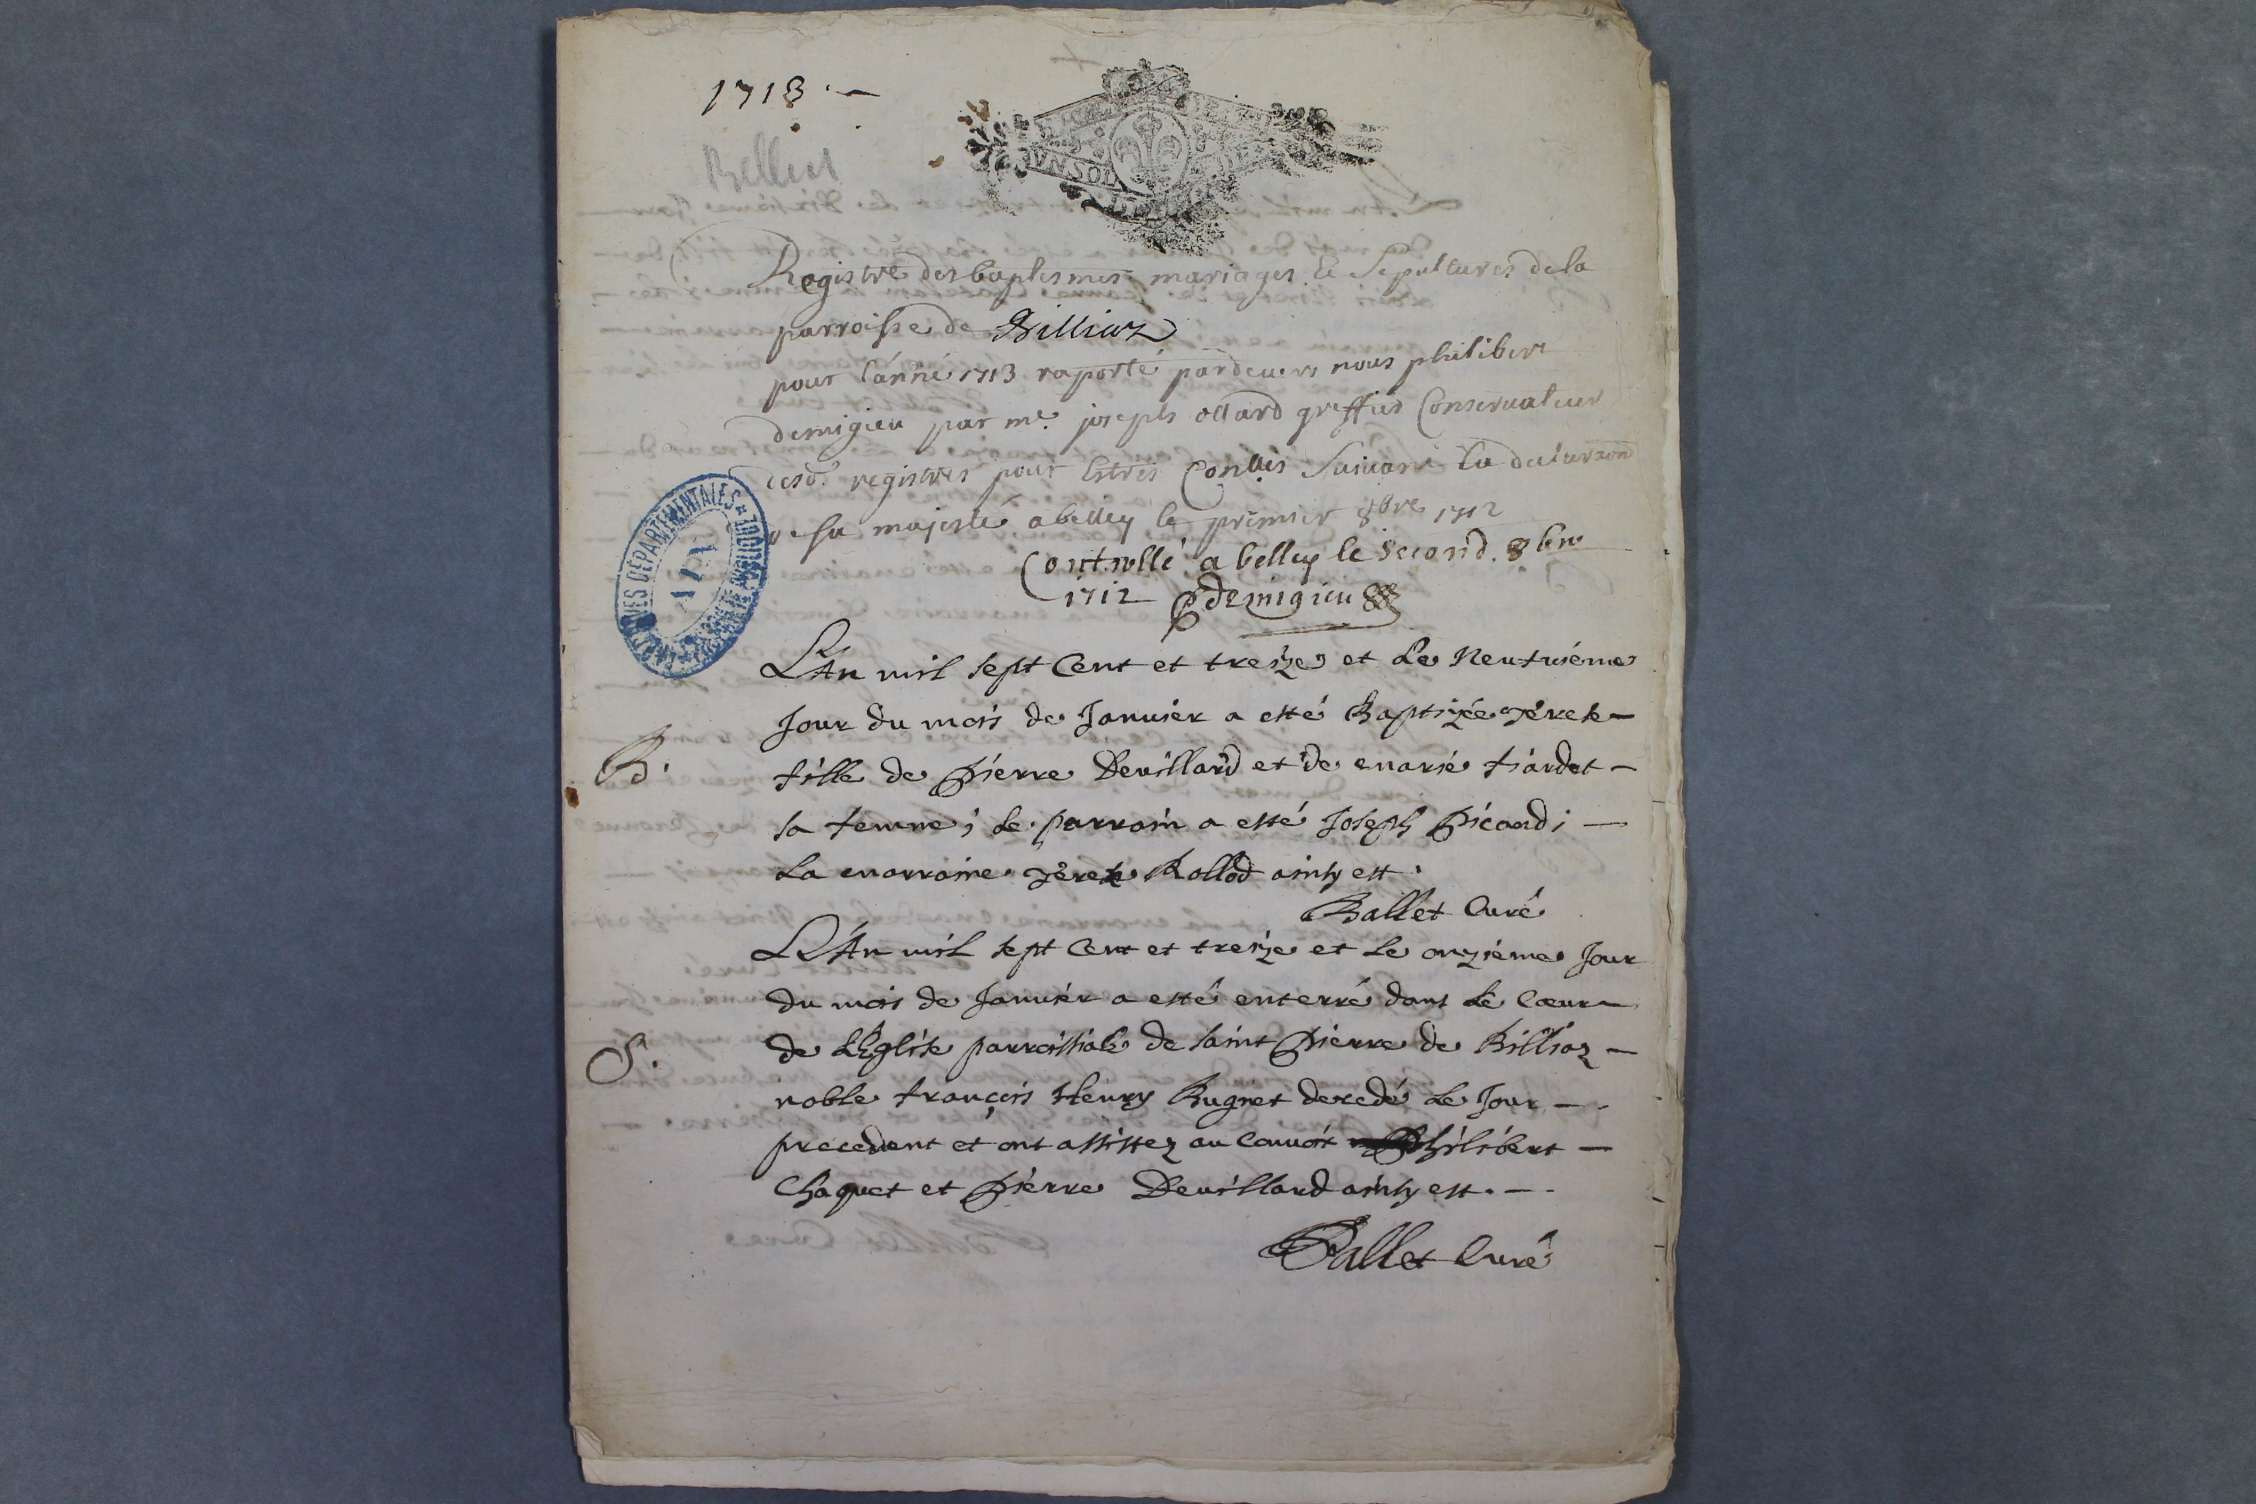 1713 .—
Belley
UN SOL
Registre des baptesmes mariages et Sepultures de la
parroisse de Billiaz
pour l'anné 1713 raporté pardevers nous philibert
demigieu par me. joseph ollard greffier Conservateur
desd. registres pour Estres Conllés Suivant la declarãon
de sa majesté a belley le premier 8bre 1712
Controllé a belley le second. 8bre
1712 P demigieu
ARCHIVES DÉPARTEMENTALES
AIN
L'An mil sept Cent et treize et Le Neufvieme
Jour du mois de Janvier a esté Baptizée Terese —
B.
fille de Pierre Devillard et de marie fiardet —
sa femme ; Le parrain a esté Joseph Picard ; —
La marraine Terese Rollod ainsy est .
Ballet Curé
L'An mil sept Cent et treize et Le onzieme Jour
du mois de Janvier a esté enterré dans Le Cœur —
S.
de L'Eglise parroissiale de saint Pierre de Billiaz —
noble françois Henry Bugnet decedé Le Jour — .
precedent et ont assistez au Convoit Philibert —
Chaquet et Pierre Devillard ainsy est . —
Ballet Curé